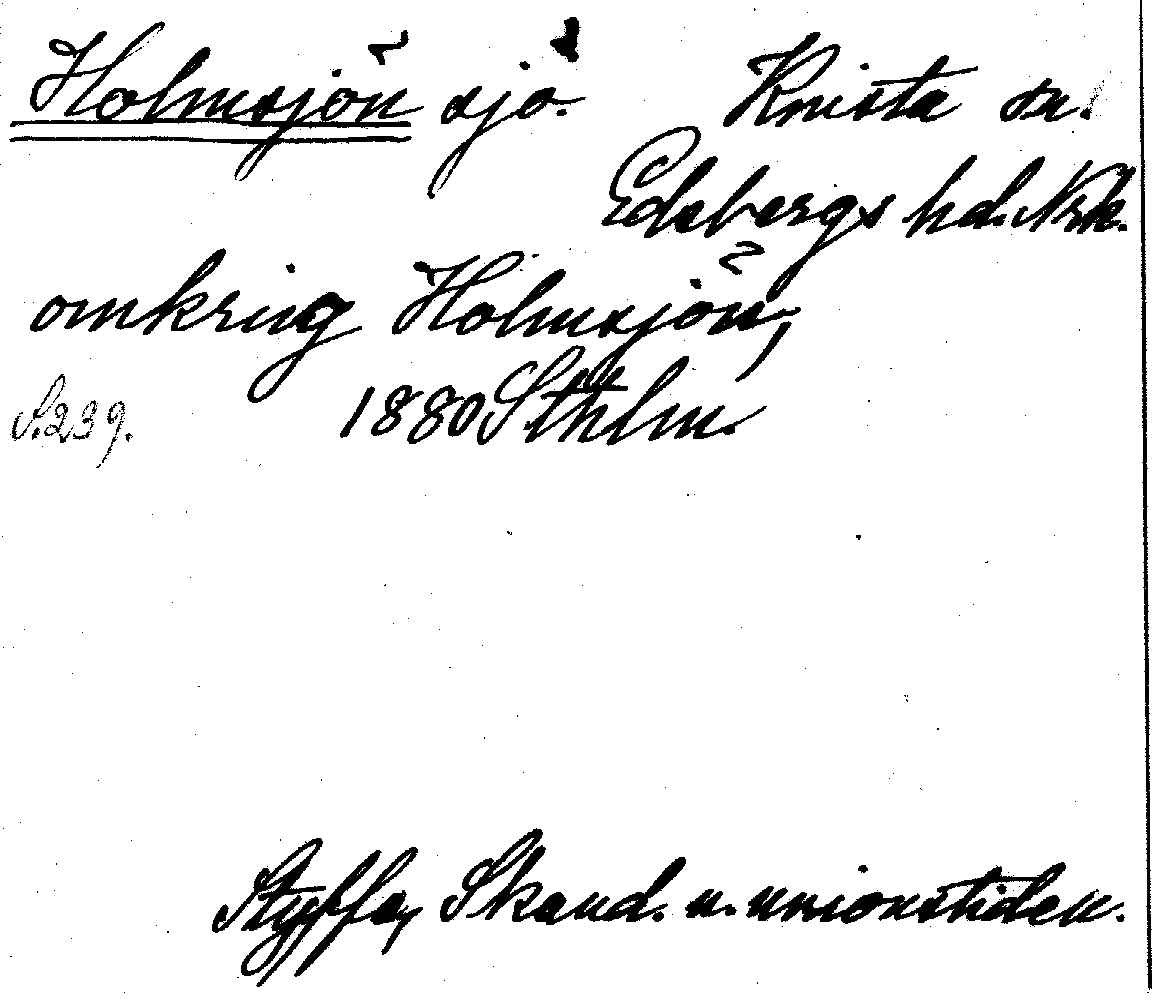 Holmsjön sjö. Knista sn.
Edsbergs hd. Nrk.
omkring Holmsjön,
S. 239. 1880 Sthlm.
Styffe, Skand. u. unionstiden.